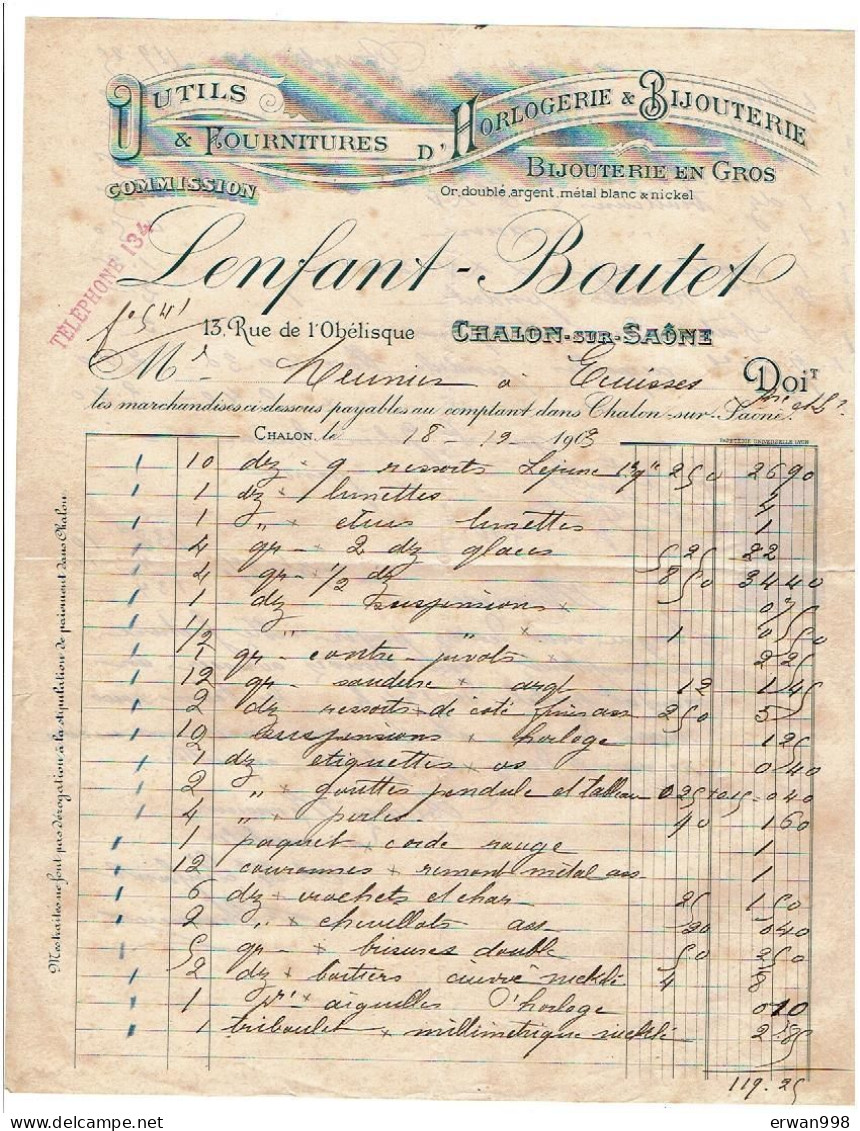 OUTILS
& FOURNITURES D'HORLOGERIE & BIJOUTERIE
COMMISSION
BIJOUTERIE EN GROS
Or, doublé, argent, métal blanc & nickel
TÉLÉPHONE 134
Lenfant-Boutet
fo 541
13, Rue de l'Obélisque CHALON-SUR-SAÔNE
Mr Meunier à Ecuisses DOIT
les marchandises ci-dessous payables au comptant dans Chalon-sur-Saône.
PAPETERIE UNIVERSELLE LYON
CHALON, le 18-12 1903
10 dz 9 ressorts Lejeune 250 2690
1 dz x lunettes 4
1 " x etuis lunettes 1
4 gr - 2 dz glaces 525 22
4 gr - 1/2 dz 850 3440
1 dz suspensions x 075
1/2 " " x 1 050
1 gr - contre-pivots x 225
12 gr - soudure x argt 12 145
2 dz ressorts de coté finis ass 250 5
10 suspensions x horloge 125
1 dz etiquettes x os 040
2 " x gouttes pendule et tableau 025 + 015 = 040
4 " x perles 40 160
1 paquet x corde rouge 1
12 couronnes x remont métal ass 1
6 dz x crochets et char 25 150
2 " x chevillots ass 20 040
5 gr - x brisures double 50 250
2 dz x boitiers cuivre nickelé 4 8
1 pr x aiguilles d'horloge 010
1 triboulet x millimetrique nickelé 285
119.25
Mes traites ne font pas dérogation à la stipulation de paiement dans Chalon
erwan998